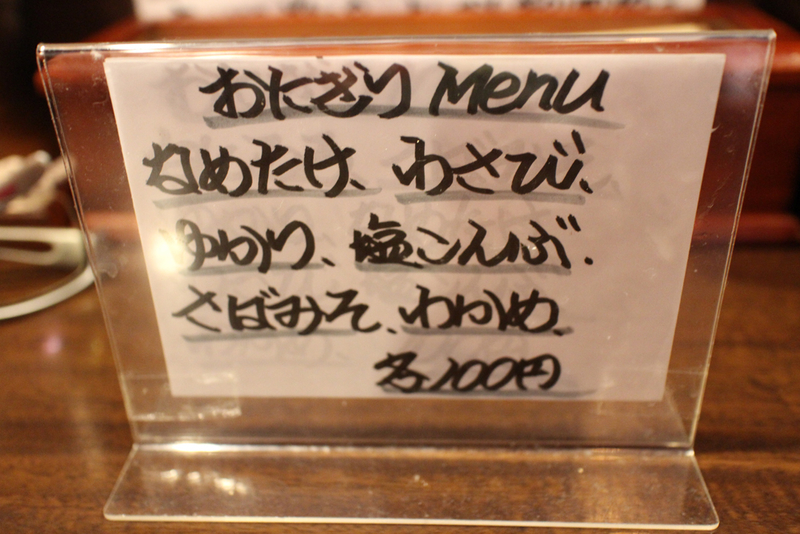 おにぎり Menu
なめたけ、わさび、
ゆかり、塩こんぶ.
さばみそ、わかめ、
各100円